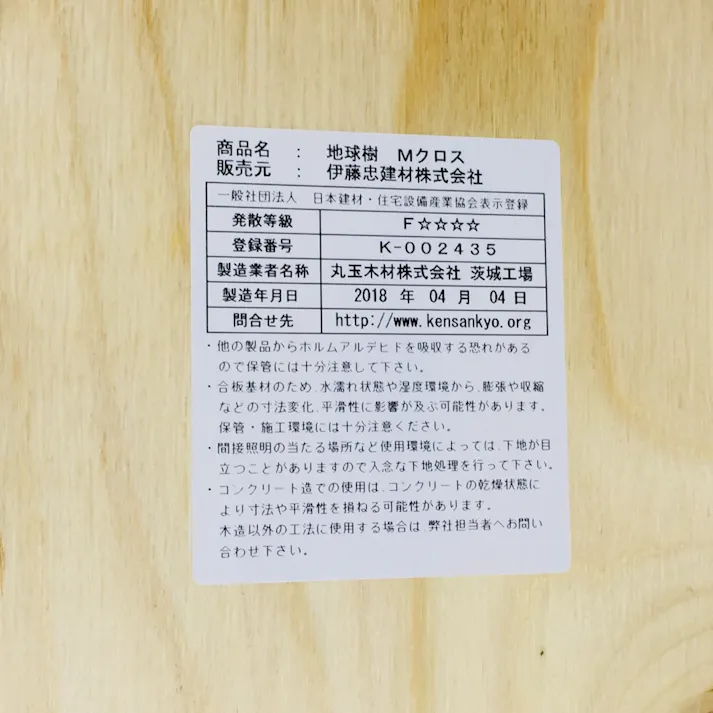 商品名 : 地球樹 Mクロス
販売元 : 伊藤忠建材株式会社
一般社団法人 日本建材・住宅設備産業協会表示登録
発散等級 F☆☆☆☆
登録番号 K-002435
製造業者名称 丸玉木材株式会社 茨城工場
製造年月日 2018 年 04 月 04 日
問合せ先 http://www.kensankyo.org
・他の製品からホルムアルデヒドを吸収する恐れがある
ので保管には十分注意して下さい。
・合板基材のため、水濡れ状態や湿度環境から、膨張や収縮
などの寸法変化、平滑性に影響が及ぶ可能性があります。
保管・施工環境には十分注意ください。
・間接照明の当たる場所など使用環境によっては、下地が目
立つことがありますので入念な下地処理を行って下さい。
・コンクリート造での使用は、コンクリートの乾燥状態に
より寸法や平滑性を損ねる可能性があります。
木造以外の工法に使用する場合は 弊社担当者へお問い
合わせ下さい。